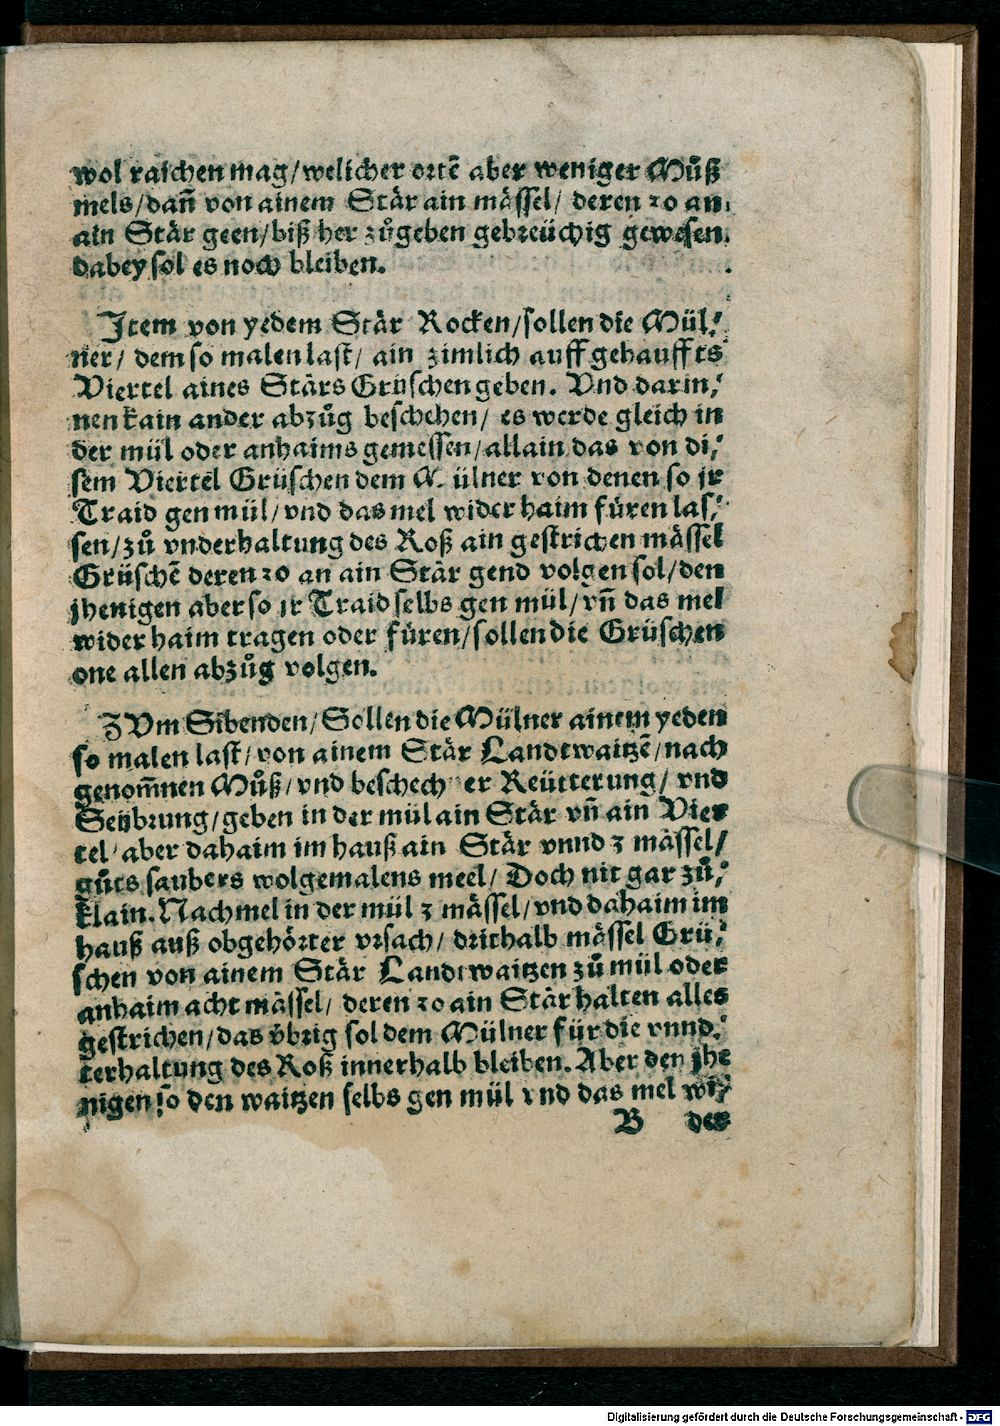 wol raichen mag/welicher ortẽ aber weniger Můß
mels/dañ von ainem Stär ain mässel/ deren 20 an
ain Stär geen/biß her zůgeben gebreüchig gewesen.
dabey sol es noch bleiben.
Jtem von yedem Stär Rocken/sollen die Mül⸗
ner/ dem so malen last/ ain zimlich auff gehauffts
Viertel aines Stärs Grüschen geben. Vnd darin⸗
nen kain ander abzůg beschehen/ es werde gleich in
der mül oder anhaims gemessen/allain das von di⸗
sem Viertel Grüschen dem M ülner von denen so jr
Traid gen mül/vnd das mel wider haim füren las⸗
sen/zů vnderhaltung des Roß ain gestrichen mässel
Grüschẽ deren 20 an ain Stär gend volgen sol/den
jhenigen aber so jr Traid selbs gen mül/vñ das mel
wider haim tragen oder füren/sollen die Grüschen
one allen abzůg volgen.
ZVm Sibenden/Sollen die Mülner ainem yeden
so malen last/von ainem Stär Landtwaitzẽ/nach
genom̃nen Můß/vnd beschech er Reütterung/ vnd
Seybrung/geben in der mül ain Stär vñ ain Vier
tel/aber dahaim im hauß ain Stär vnnd 3 mässel/
gůts saubers wolgemalens meel/ Doch nit gar zů⸗
klain. Nachmel in der mül 3 mässel/vnd dahaim im
hauß auß obgehörter vrsach/ drithalb mässel Grü⸗
schen von ainem Stär Landtwaitzen zů mül oder
anhaim acht mässel/ deren 20 ain Stär halten alles
gestrichen/das vbrig sol dem Mülner für die vnnd⸗
terhaltung des Roß innerhalb bleiben. Aber den jhe
nigen so den waitzen selbs gen mül vnd das mel wi⸗
B der
Digitalisierung gefördert durch die Deutsche Forschungsgemeinschaft - DFG